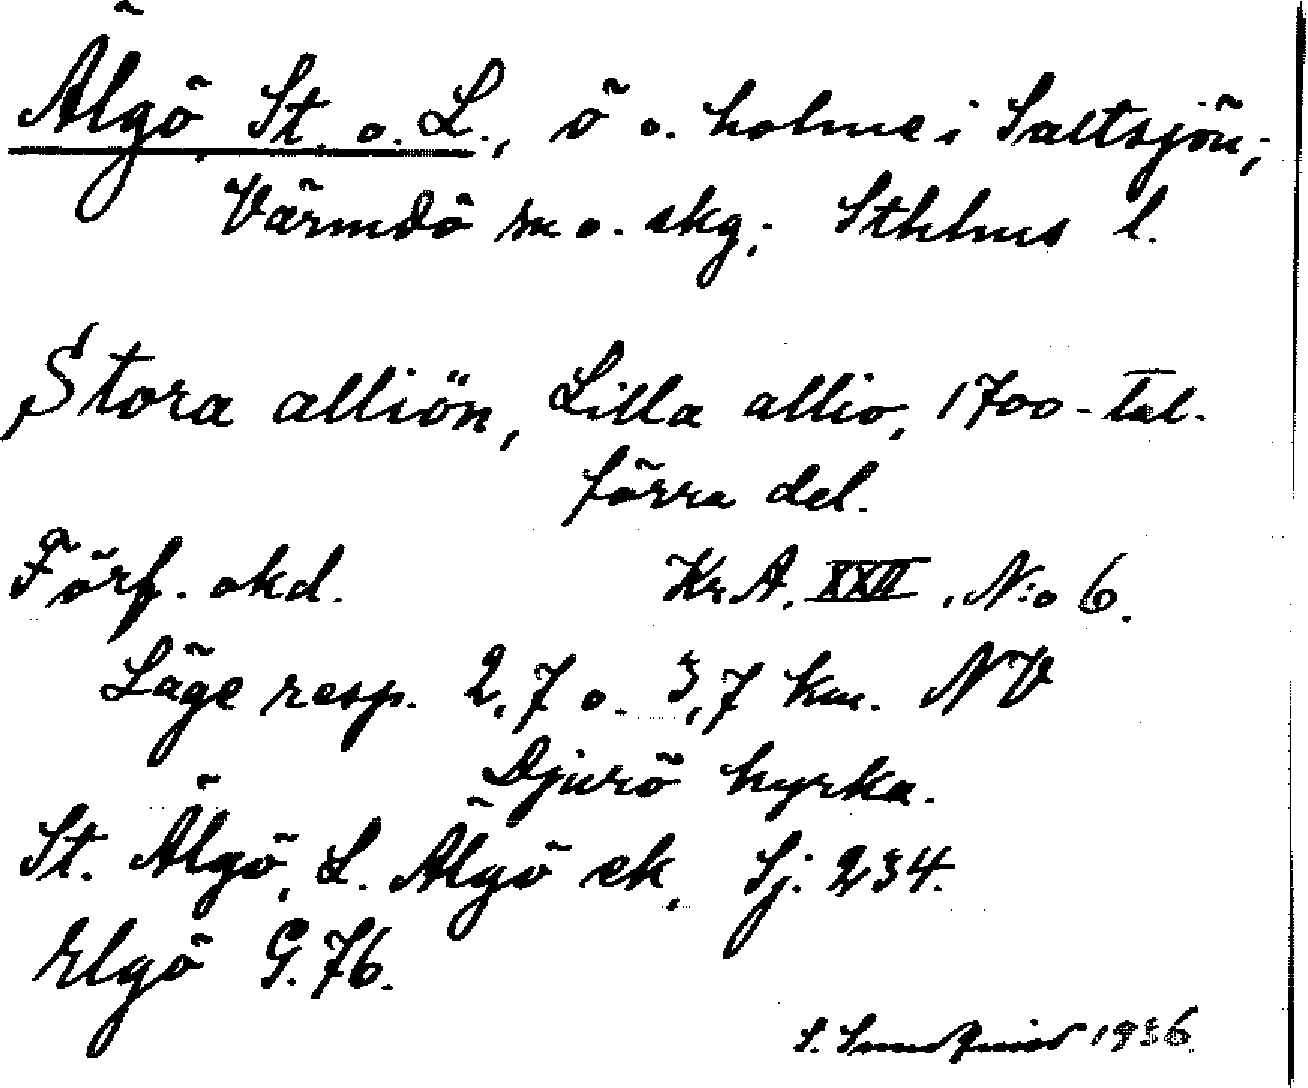 Älgö, St. o. L., ö o. holme i Saltsjön,
Värmdö sn o. skg, Sthlms l.
Stora alliön, Lilla allio, 1700-tal.
förra del.
Förf. okd. Kr. A. XXII. N:o 6.
Läge resp. 2,7 o. 3,7 km. NV
Djurö kyrka.
St. Älgö, L. Älgö ek, Sj. 234.
Elgö G. 76.
S. 1936